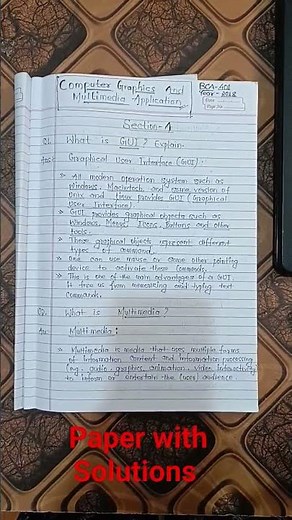 Computer Graphics And
Multimedia Application
BCA-401
Year - 2018
Date
Page No.
Section-1
Q1. What is GUI? Explain.
Ans: Graphical User Interface (GUI).
» All modern operation system such as
Windows, Macintosh and some version of
Unix and Linux provides GUI (Graphical
User Interface)
» GUI provides graphical objects such as
Windows, Menus, Icons, Buttons and other
tools.
» These graphical objects represent different
types of command.
» One can use mouse or some other pointing
device to activate these commands.
» This is one of the main advantages of a GUI
It free us from memorizing and typing text
commands.
Q2. What Is Multimedia?
An: Multimedia:
» Multimedia is media that uses multiple forms
of information content and information processing
(eg. audio, graphics, animation, video, interactivity)
to inform or entertain the (user) audience
Paper with
Solutions